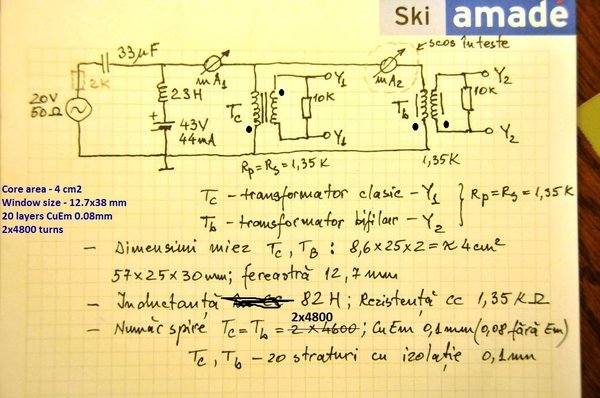 Ski amadé
33µF
scos în teste
mA1
mA2
2K
23H
20V
50Ω
+
43V
44mA
Tc
10K
Y1
Y1
Tb
10K
Y2
Y2
Rp=Rs=1,35K
1,35K
Core area - 4 cm2
Window size - 12.7x38 mm
20 layers CuEm 0.08mm
2x4800 turns
Tc - transformator clasic - Y1
Tb - transformator bifilar - Y2
Rp=Rs=1,35K
- Dimensiuni miez Tc, TB : 8,6x25x2=≈4cm²
57x25x30mm; fereastră 12,7mm
- Inductanță 82H; Rezistență cc 1,35KΩ
2x4800
- Număr spire Tc=Tb= 2x4600; CuEm 0,1mm (0,08 fără Em)
Tc, Tb - 20 straturi cu izolație 0,1mm